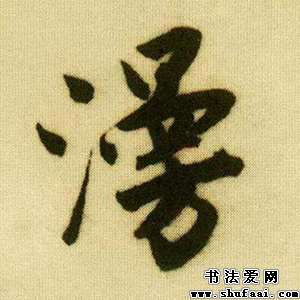 漫
书法爱网
www.shufaai.com